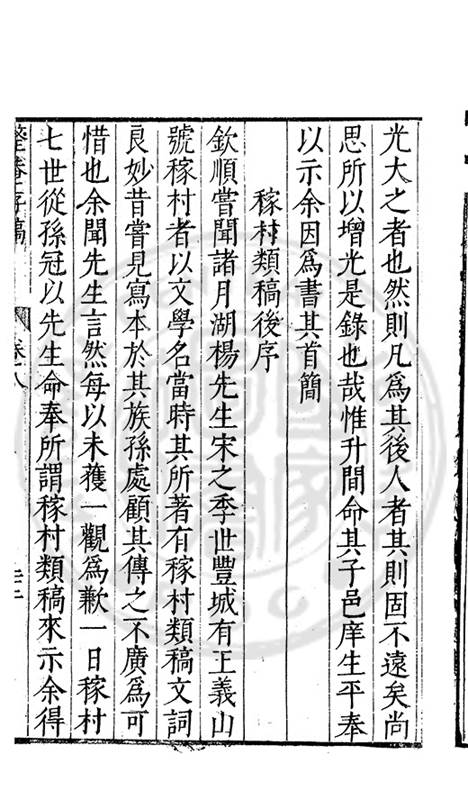 光大之者也然則凡爲其後人者其則固不遠矣尚
思所以增光是錄也哉惟升間命其子邑庠生平奉
以示余因爲書其首簡
稼村類稿後序
欽順嘗聞諸月湖楊先生宋之季世豐城有王義山
號稼村者以文學名當時其所著有稼村類稿文詞
良妙昔嘗見寫本於其族孫處顧其傳之不廣爲可
惜也余聞先生言然每以未獲一觀爲歉一日稼村
七世從孫冠以先生命奉所謂稼村類稿來示余得
整菴存稿 卷八